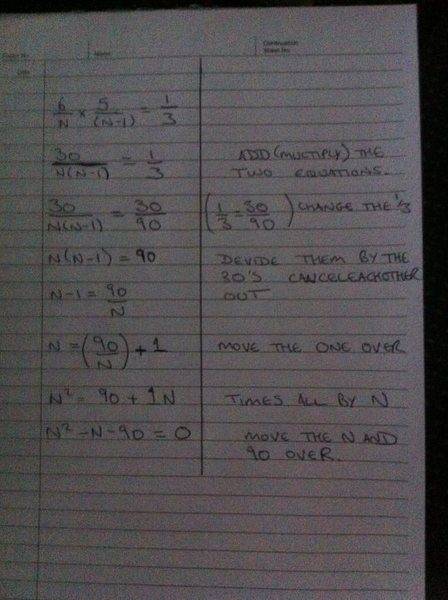 Name
Continuation
Sheet No.
6/N × 5/(N-1) = 1/3
30/N(N-1) = 1/3
ADD (MULTIPLY) THE
TWO EQUATIONS.
30/N(N-1) = 30/90
(1/3 = 30/90) CHANGE THE 1/3
N(N-1) = 90
DEVIDE THEM BY THE
30'S CANCELEACHOTHER
OUT
N-1 = 90/N
N = (90/N) + 1
MOVE THE ONE OVER
N² = 90 + 1N
TIMES ALL BY N
N² - N - 90 = 0
MOVE THE N AND
90 OVER.